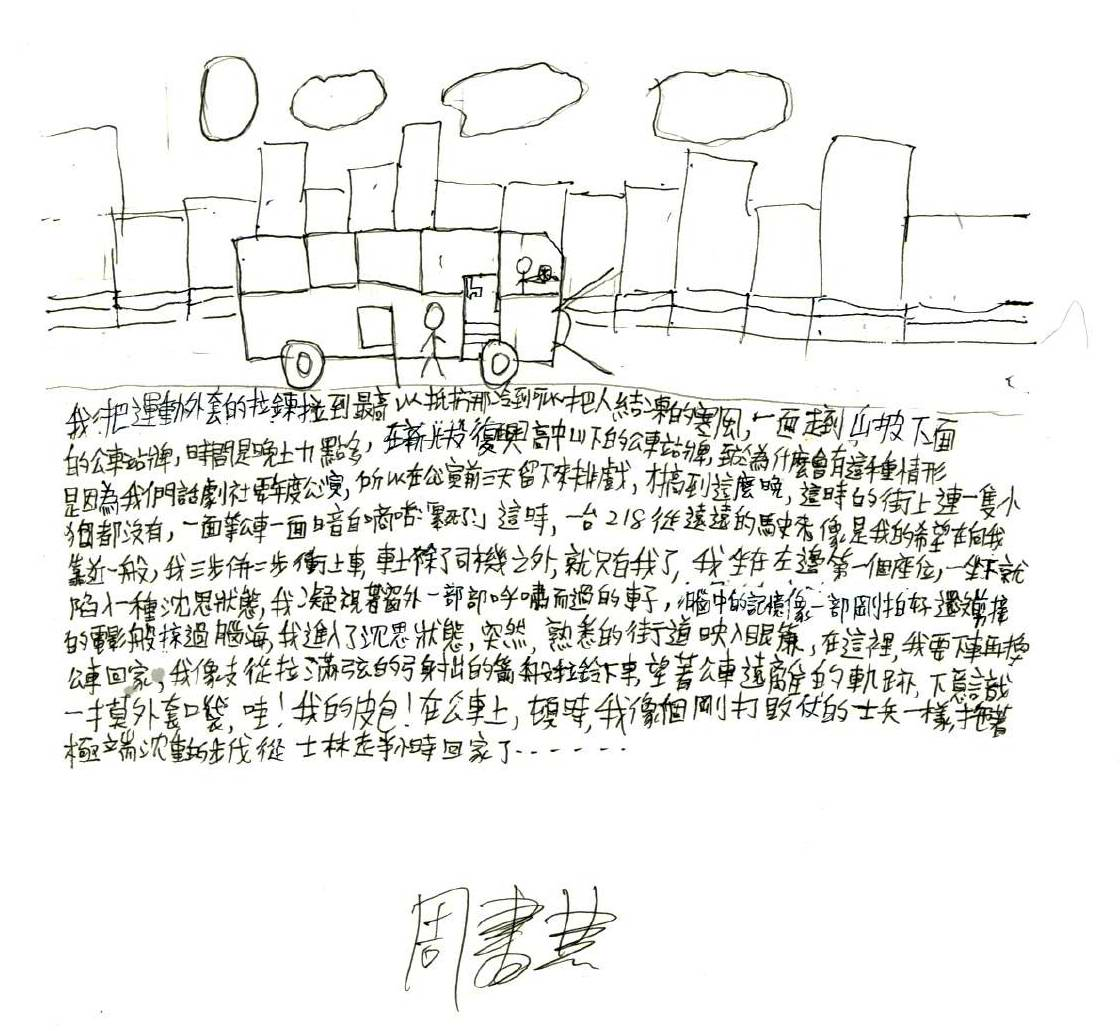 我把運動外套的拉鍊拉到最高以抵抗那冷到可以把人結凍的寒風,一面走到山坡下面
的公車站牌,時間是晚上九點多,在新北投復興高中山下的公車站牌,至於為什麼會有這種情形
是因為我們話劇社要年度公演,所以在公演前三天留下來排戲,才搞到這麼晚,這時的街上連一隻小
狗都沒有,一面等公車一面暗自嘀咕「累死了!」這時,一台218從遠遠的駛來像是我的希望在向我
靠近一般,我三步併二步衝上車,車上除了司機之外,就只有我了,我坐在左邊第一個座位,一坐下就
陷入一種沈思狀態,我凝視著窗外一部部呼嘯而過的車子,腦中的記憶像一部剛拍好還沒剪接
的電影般掠過腦海,我進入了沈思狀態,突然,熟悉的街道映入眼簾,在這裡,我要下車再換
公車回家,我像支從拉滿弦的弓射出的箭般拉鈴下車,望著公車遠離的軌跡,下意識
一摸外套口袋,哇!我的皮包!在公車上,頓時,我像個剛打敗仗的士兵一樣,拖著
極端沈重的步伐從 士林走半小時回家了......
周書